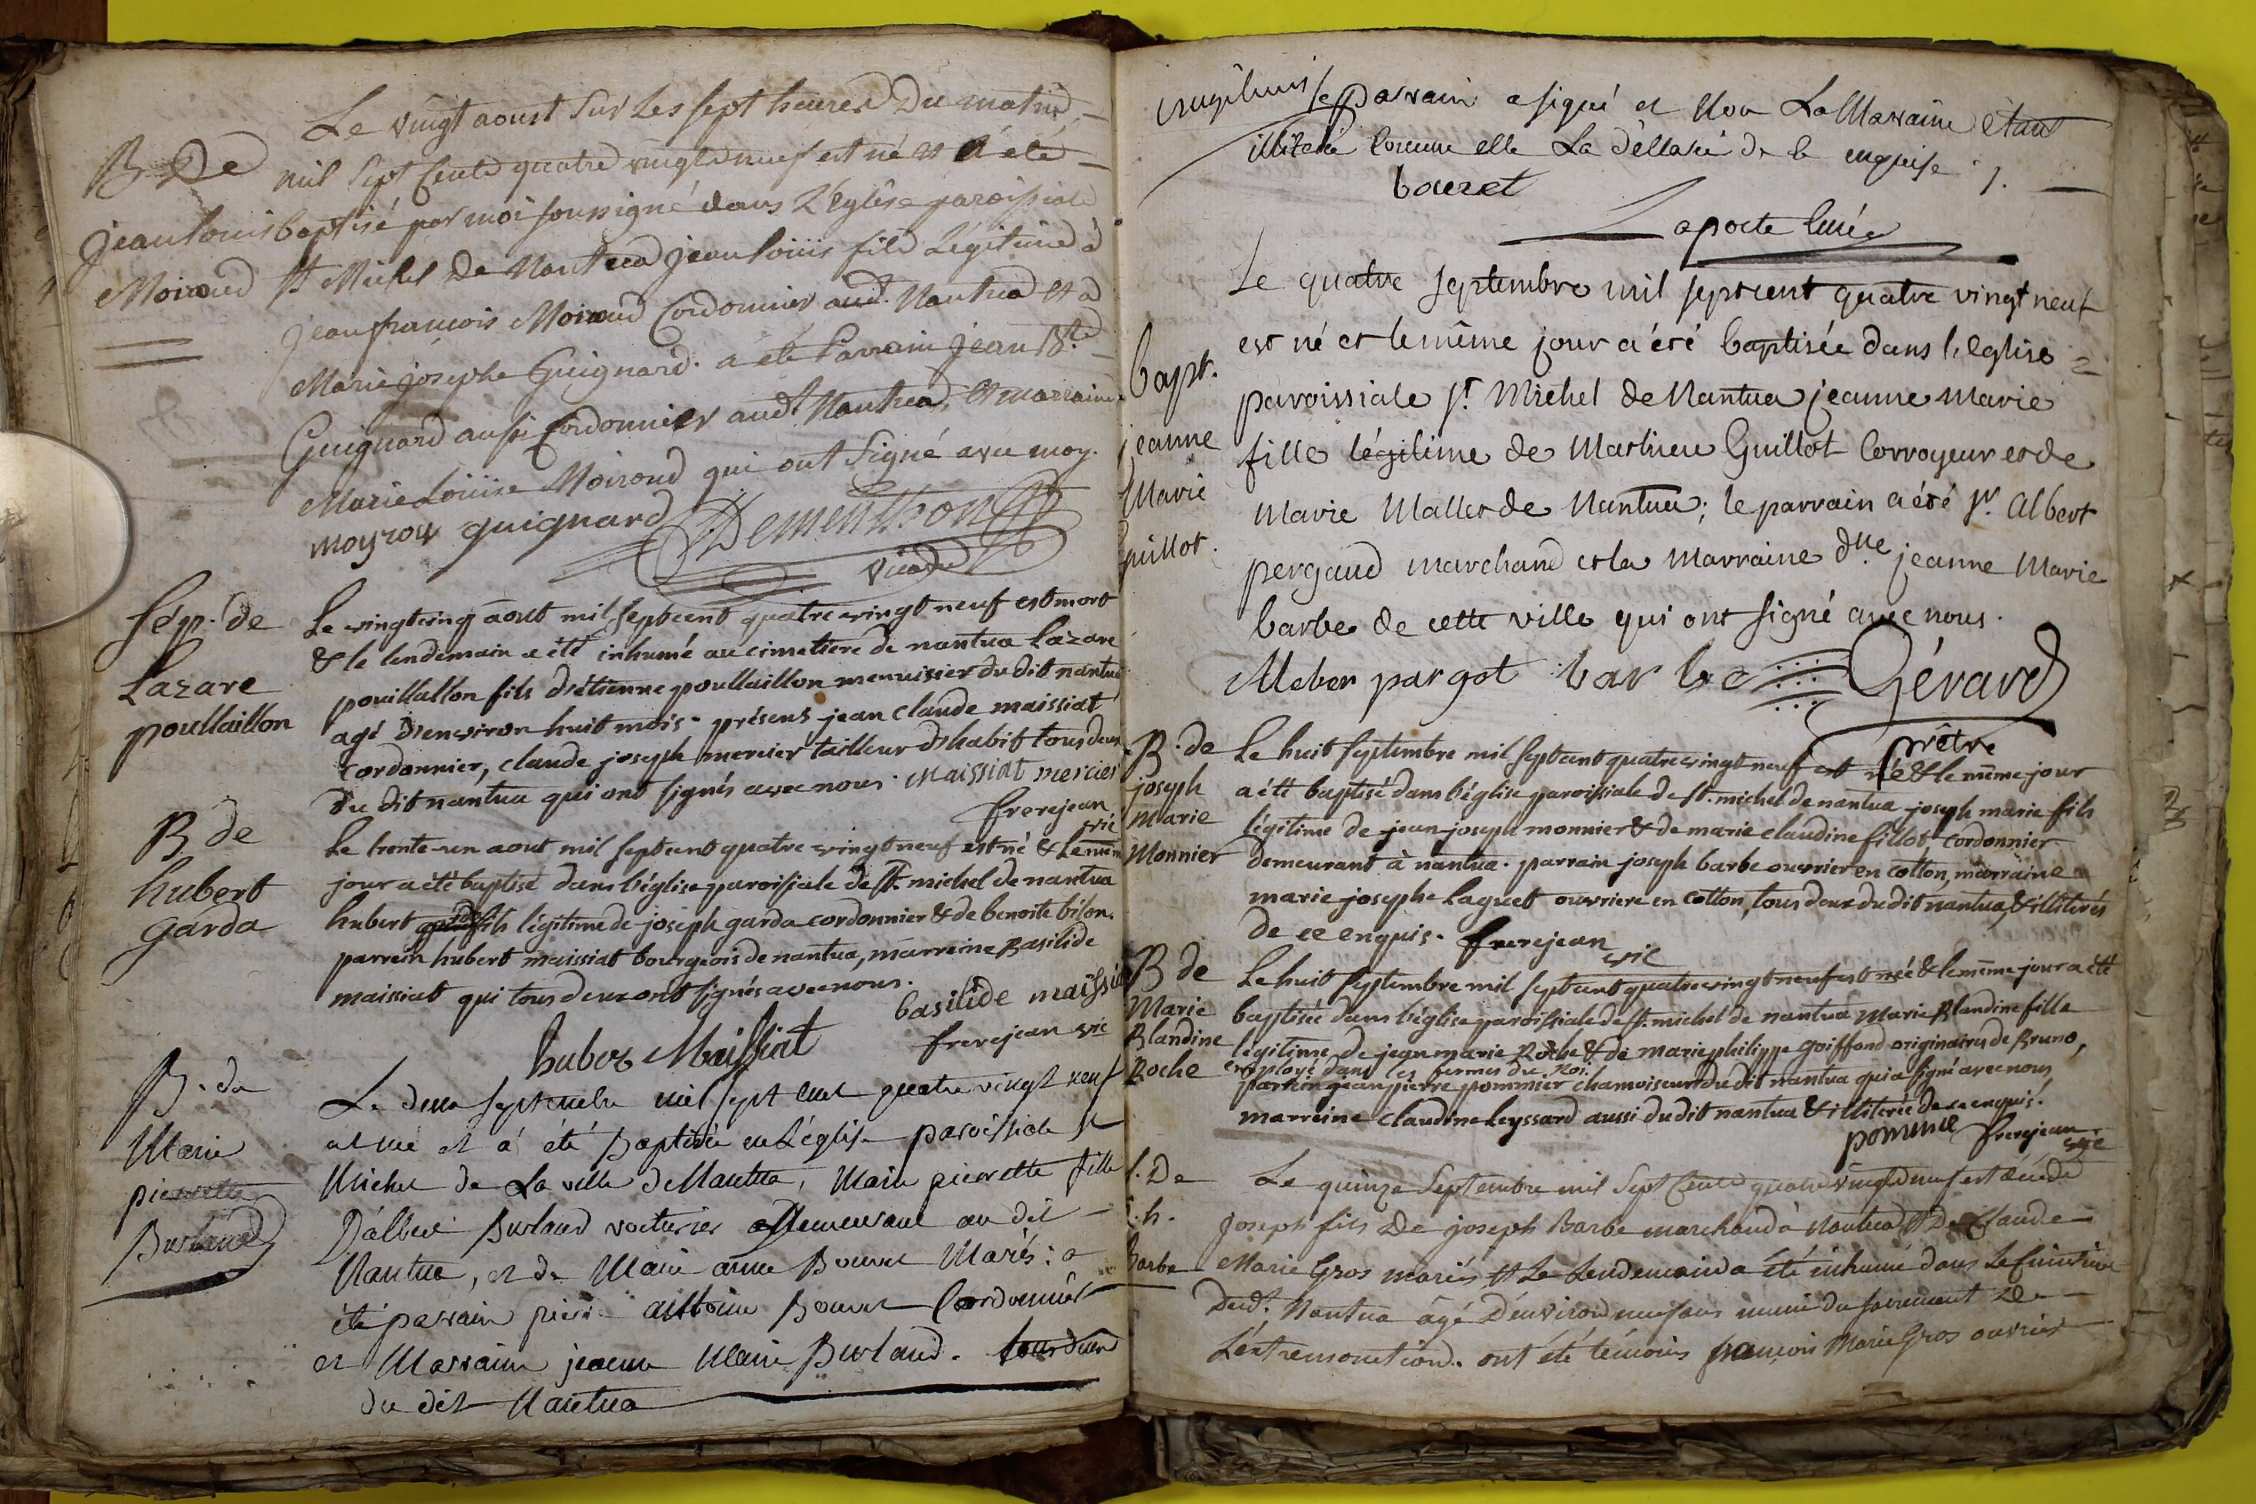 B De
jean louis
Moiroud
Le vingt aoust sur les sept heures Du matin
mil sept Cents quatre vingtd neuf est né et a été
baptisé par moi soussigné dans L'église paroissiale
St Michel De Nantua jean louis fils Légitime à
jean françois Moiroud Cordonnier audt. Nantua et à
Marie josephe Guignard. a été Parrain jean Bte
Guignard aussi Cordonnier audt Nantua, et marraine
Marie Louise Moiroud qui ont signé avec moy.
moyroux guignard Dementhon
vicaire
Sép. de
Lazare
poullaillon
Le vingt cinq aout mil sept cent quatre vingt neuf est mort
& le lendemain a été inhumé au cimetiere de nantua Lazare
pouillallon fils d'etienne poullaillon menuisier du dit nantua
agé d'environ huit mois. présens jean claude maissiat
cordonnier, claude joseph mercier tailleur d'habit tous deux
du dit nantua qui ont signés avec nous. Maissiat mercier
frerejean
vic
B de
hubert
garda
Le trente-un aout mil sept cent quatre vingt neuf est né & le même
jour a été baptisé dans l'église paroissiale de St. michel de nantua
hubert fils légitime de joseph garda cordonnier & de benoite bilon.
parrein hubert maissiat bourgeois de nantua, marreine Basilide
maissiat qui tous deux ont signés avec nous.
basilide maissiat
hubert Maissiat frerejean vic
B. de
Marie
pierrette
Burland
Le deux septembre mil sept cent quatre vingt neuf
est née et a été Baptisée en L'église paroissiale St
Michel de La ville de Nantua, Marie pierrette fille
D'albert Burland voiturier demeurant au dit
Nantua, et de Marie anne Bouvet Mariés: a
été parrain pierre antoine Bouvet Cordonnier
et Marraine jeanne Marie Burland. tous deux
du dit Nantua
enquis le parrain a signé et Non La Marraine étant
illitérée Comme elle La déclaré de ce enquise
bouvet
Laporte Curé
bapt.
jeanne
Marie
guillot.
Le quatre septembre mil sept cent quatre vingt neuf
est né et le même jour a été baptisée dans l'Eglise
paroissiale St. Michel de Nantua jeanne marie
fille légitime de Mathieu Guillot Corroyeur et de
Marie Mallet de Nantua; le parrain a été Sr. Albert
pergaud marchand et la marraine dlle jeanne Marie
barbe de cette ville qui ont signé avec nous.
Aleber pargot barbe Gérard
prêtre
B. de
joseph
marie
Monnier
Le huit septembre mil sept cent quatre vingt neuf est né & le même jour
a été baptisé dans l'église paroissiale de St. michel de nantua joseph marie fils
légitime de jean joseph monnier & de marie claudine fillot, cordonnier
demeurant à nantua. parrain joseph barbe ouvrier en cotton, marraine
marie josephe Laguet ouvriere en cotton, tous deux du dit nantua, & illitérés
de ce enquis. frerejean
vic
B de
Marie
Blandine
Roche
Le huit septembre mil sept cent quatre vingt neuf est née & le même jour a été
baptisée dans l'église paroissiale de St. michel de nantua Marie Blandine fille
légitime de jean marie Roche & de marie philippe goiffond originaires de Bruno,
employé dans les fermes du Roi.
parrein jean pierre pommier chamoiseur du dit nantua qui a signé avec nous
marreine claudine Leyssard aussi du dit nantua & illitérée de ce enquis.
pommié frerejean
vic
S. De
h.
barbe
Le quinze Septembre mil Sept Cents quatre vingtd neuf est décédé
joseph fils De joseph Barbe marchand à Nantua et De Claude
Marie Gros mariés et Le Lendemain a été inhumé dans Le Cimetiere
Dudt. Nantua agé D'environ neuf ans muni du sacrement De
L'extremonction. ont été témoins françois Marie Gros ouvrier